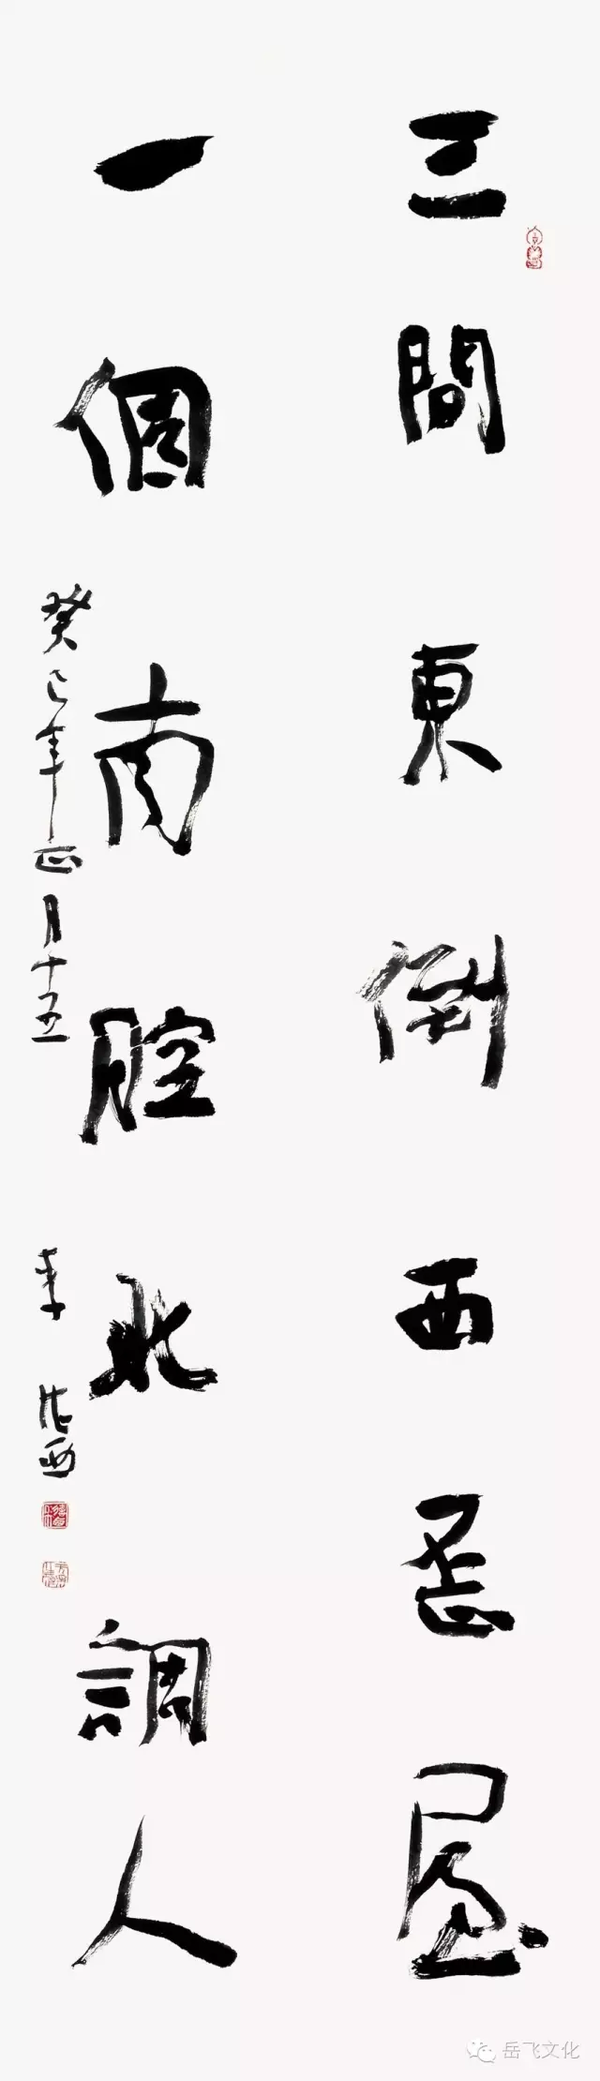 三間東倒西歪屋
一個南腔北調人
癸巳年正月十五
李
岳飞文化